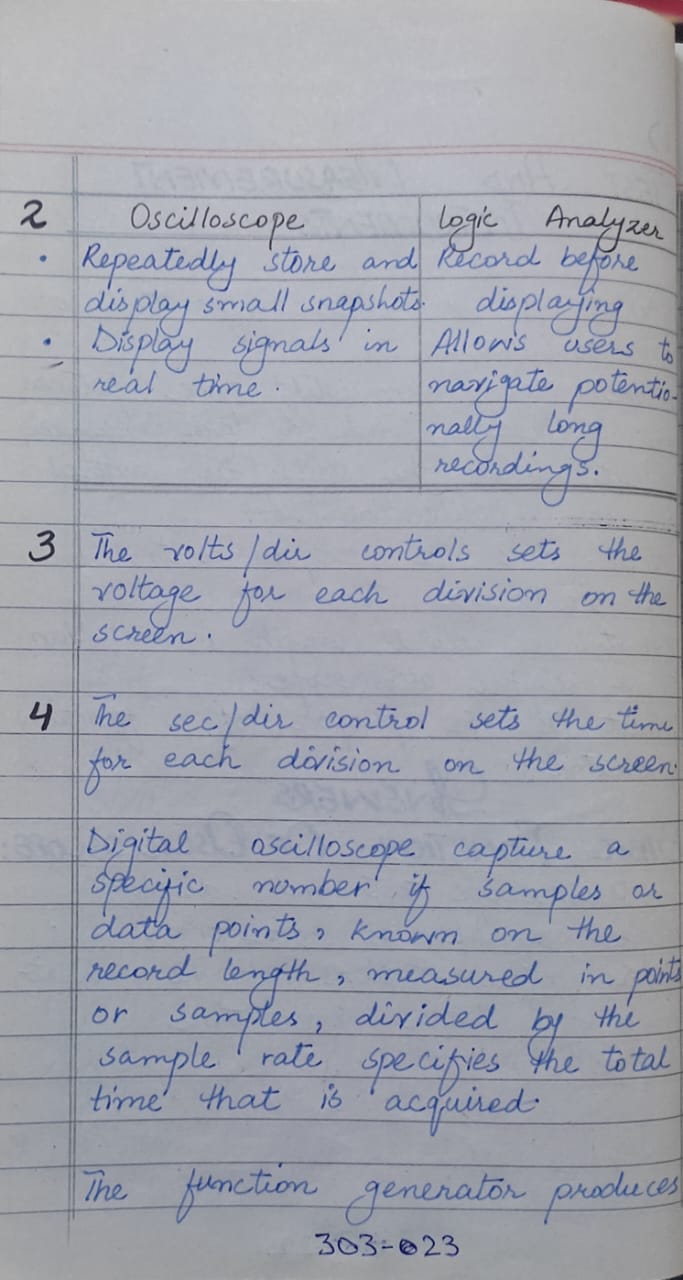 2 Oscilloscope Logic Analyzer
• Repeatedly store and Record before
display small snapshots. displaying
• Display signals in Allows users to
real time. navigate potentio-
nally long
recordings.
3 The volts/div controls sets the
voltage for each division on the
screen.
4 The sec/div control sets the time
for each division on the screen.
Digital oscilloscope capture a
specific number if samples or
data points, known on the
record length, measured in points
or samples, divided by the
sample rate specifies the total
time that is acquired.
The function generator produces
303-023